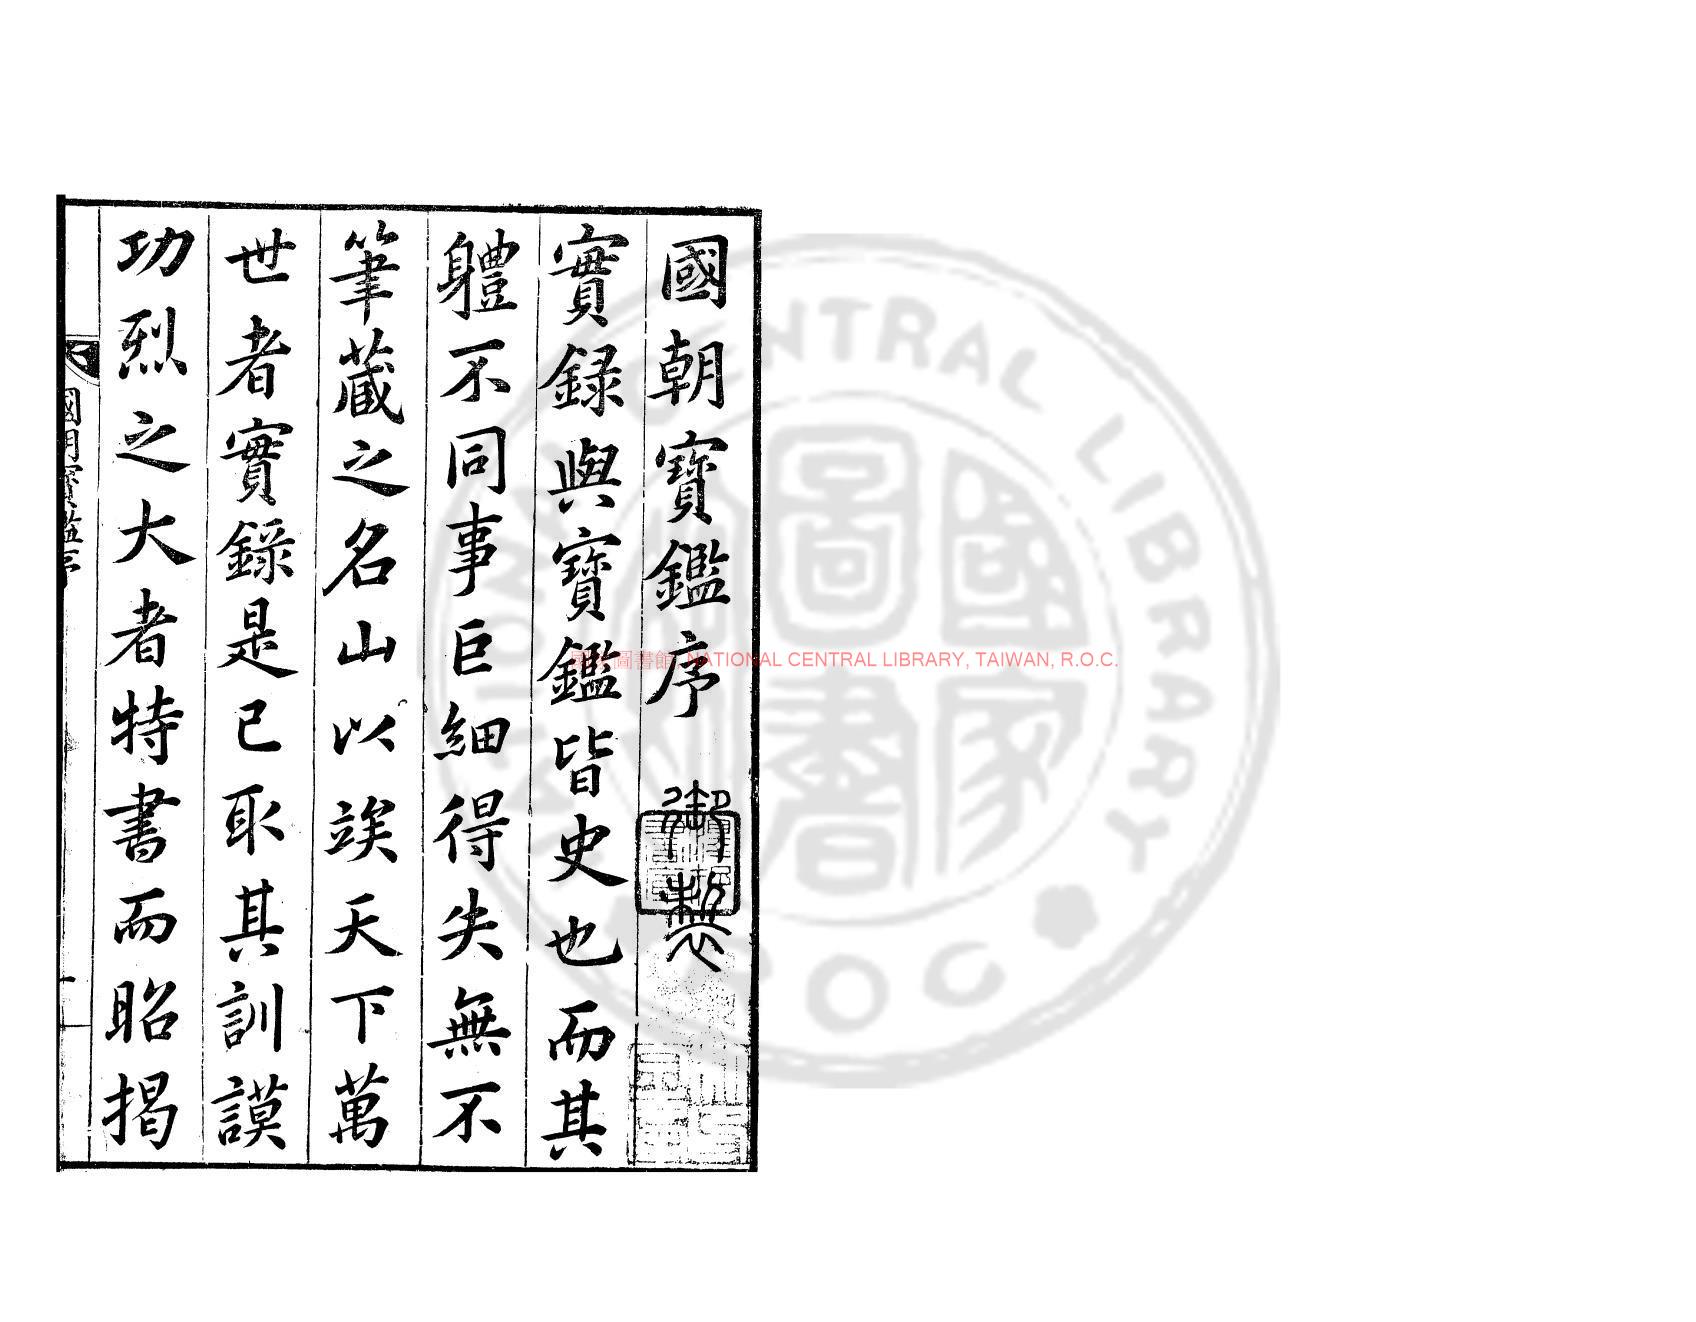 國朝寶鑑序 御製
實録與寶鑑皆史也而其
軆不同事巨細得失無不
筆蔵之名山以竢天下萬
世者實録是已取其訓謨
功烈之大者特書而昭揭
國朝寶鑑序
一
圖書館, NATIONAL CENTRAL LIBRARY, TAIWAN, R.O.C.
國家圖書館
CENTRAL LIBRARY